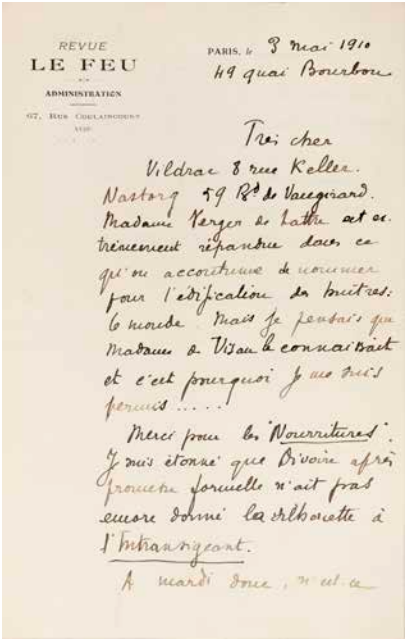 REVUE
LE FEU
ADMINISTRATION
67, RUE COULAINCOURT
PARIS, le 3 mai 1910
49 quai Bourbon
Très cher
Vildrac 8 rue Keller.
Nastorg 59 Bd de Vaugirard.
Madame Verger de Lattre est ex-
trêmement répandue dans ce
qu'on accoutume de nommer
pour l'édification des huîtres :
le monde. Mais je pensais que
Madame de Visan le connaissait
et c'est pourquoi je me suis
permis.....
Merci pour les "Nourritures".
Je suis étonné que Divoire après
promesse formelle n'ait pas
encore donné la silhouette à
l'Intransigeant.
A mardi donc, n'est-ce